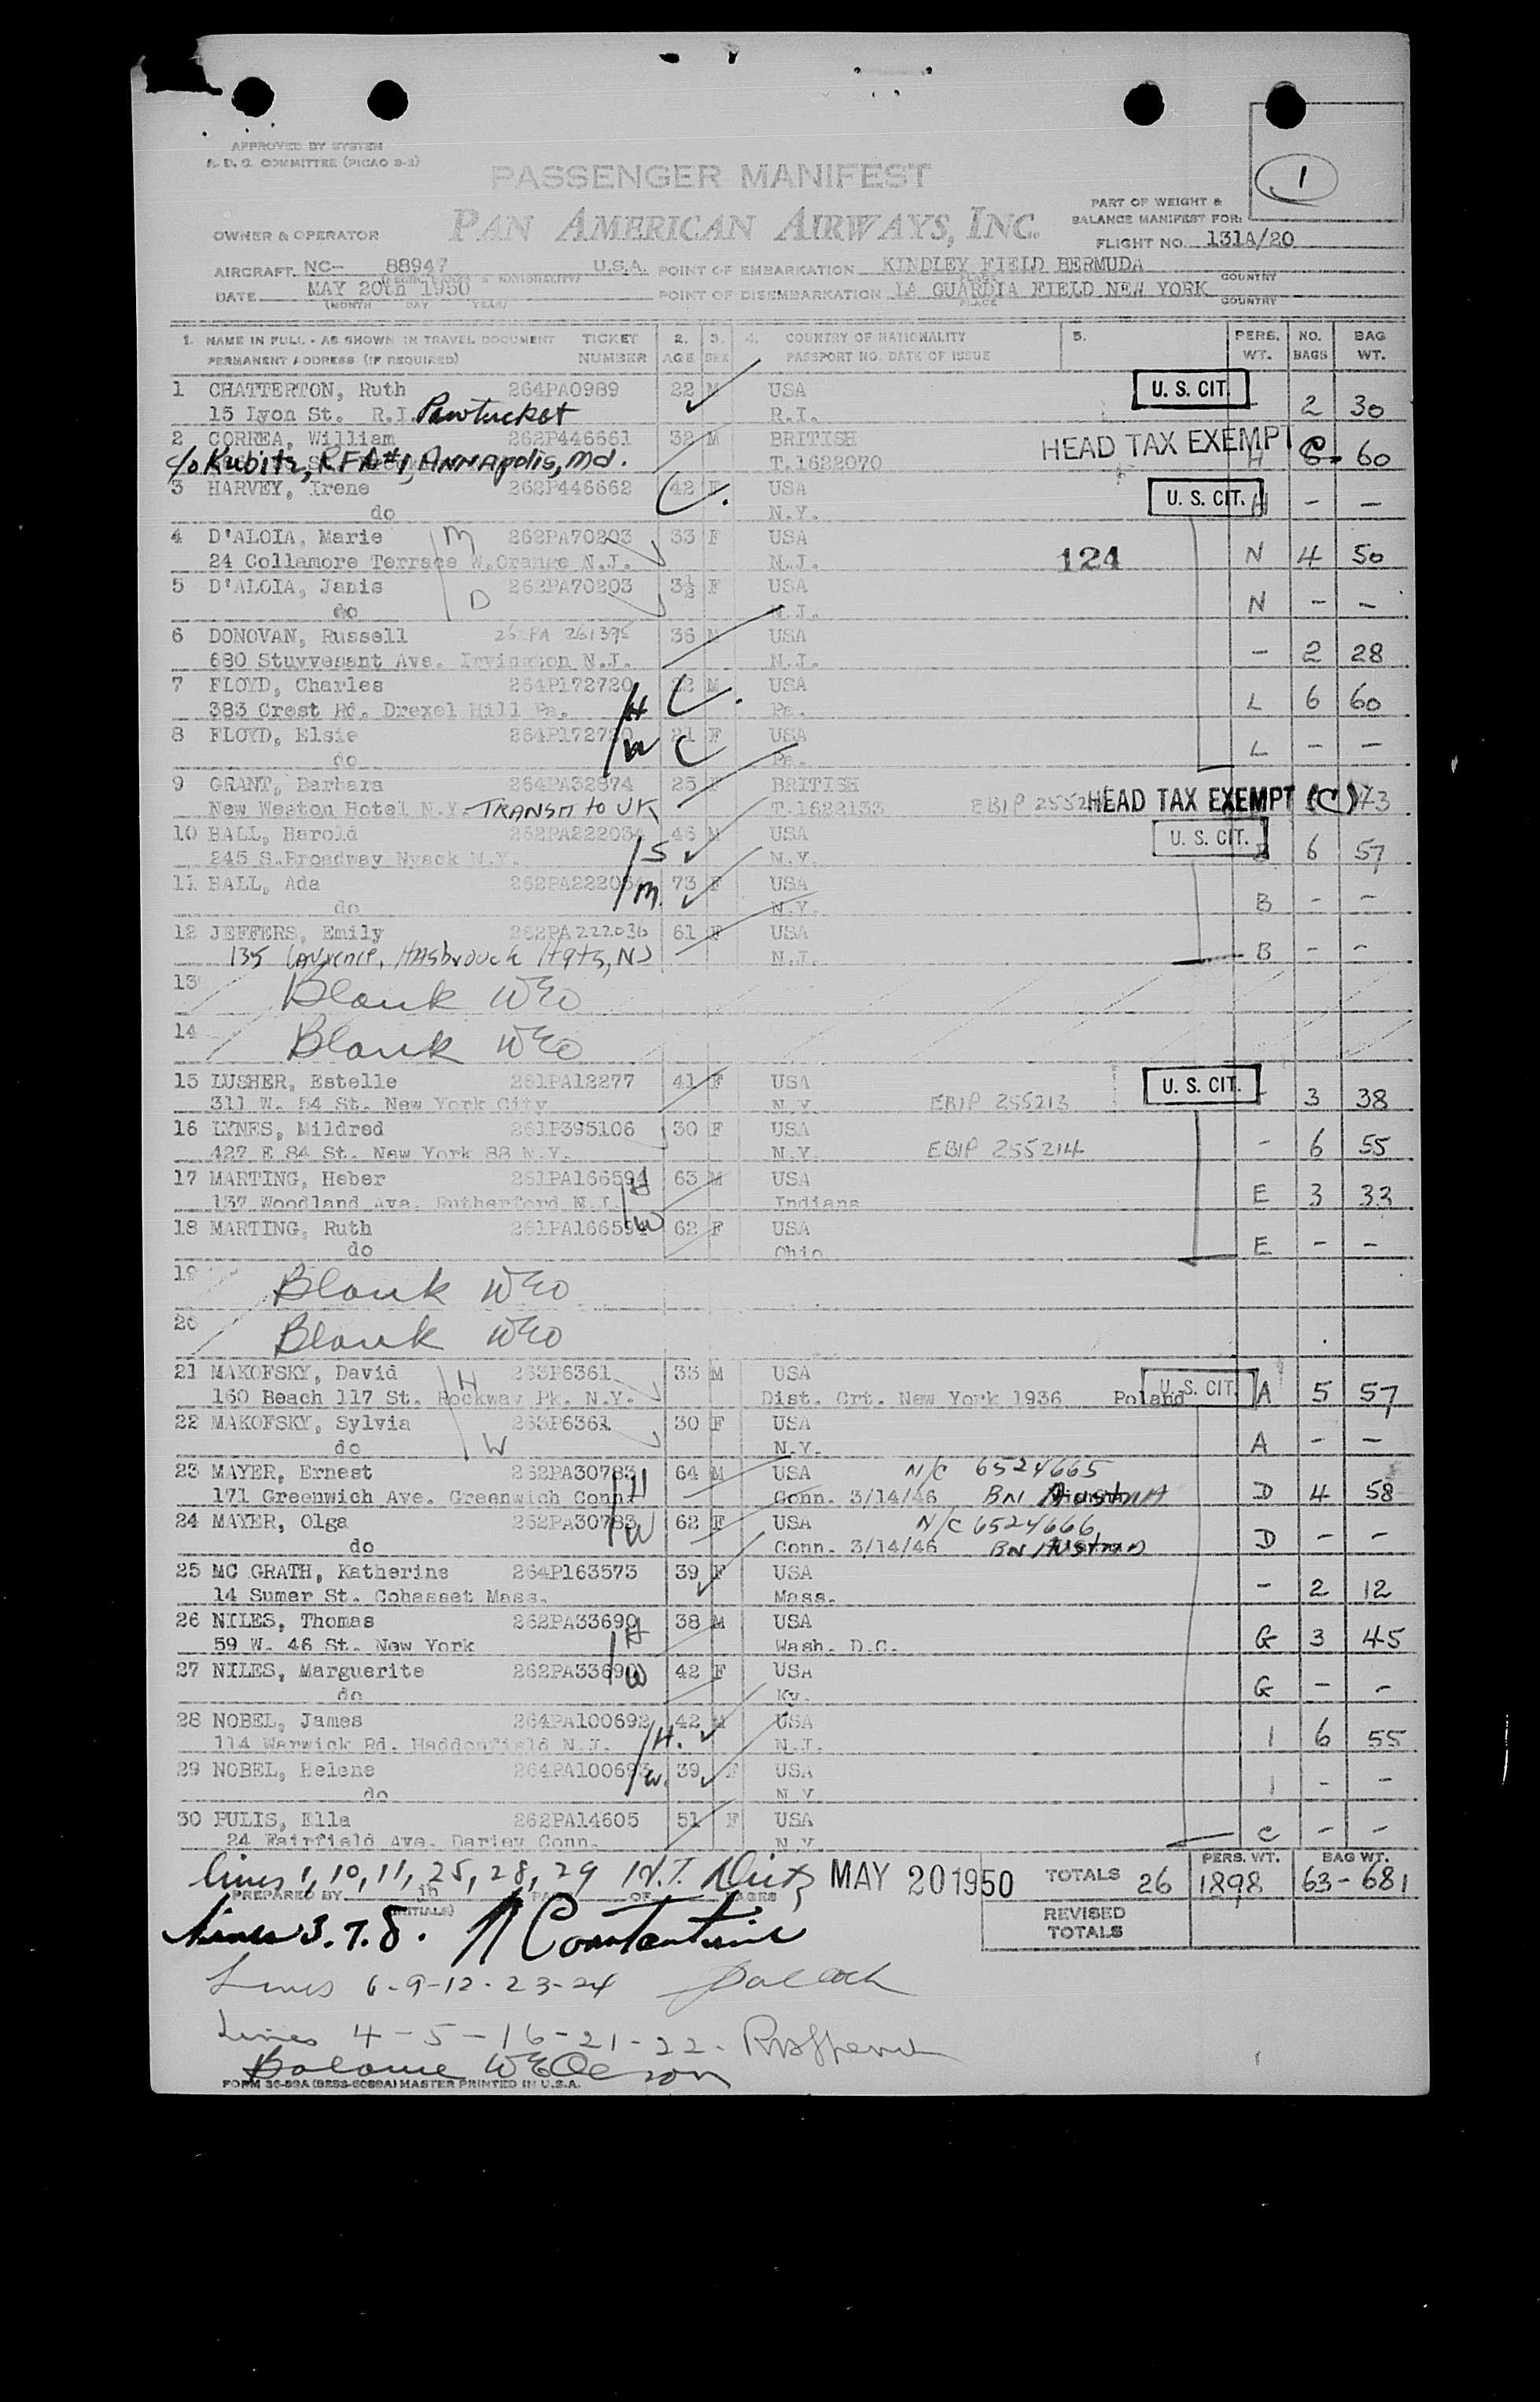 APPROVED BY SYSTEM
A. D. C. COMMITTEE (PICAO S-2)
1
PASSENGER MANIFEST
PAN AMERICAN AIRWAYS, INC.
PART OF WEIGHT &
BALANCE MANIFEST FOR:
OWNER & OPERATOR
FLIGHT NO. 131A/20
AIRCRAFT NC- 88947 U.S.A. POINT OF EMBARKATION KINDLEY FIELD BERMUDA
PLACE COUNTRY
DATE MAY 20th 1950 POINT OF DISEMBARKATION LA GUARDIA FIELD NEW YORK
(MONTH DAY YEAR) PLACE COUNTRY
1. NAME IN FULL - AS SHOWN IN TRAVEL DOCUMENT TICKET 2. 3. 4. COUNTRY OF NATIONALITY 5. PERS. NO. BAG
PERMANENT ADDRESS (IF REQUIRED) NUMBER AGE SEX PASSPORT NO. DATE OF ISSUE WT. BAGS WT.
1 CHATTERTON, Ruth 264PA0989 22 M USA U. S. CIT.
15 Lyon St. R.I. Pawtucket R.I. 2 30
2 CORREA, William 262P446661 32 M BRITISH HEAD TAX EXEMPT
c/o Kubitz, RFD#1, Annapolis, Md. T.1622070 H 60
3 HARVEY, Irene 262P446662 42 F USA U. S. CIT. H - -
do N.Y.
4 D'ALOIA, Marie M 262PA70203 33 F USA
24 Collamore Terrace W.Orange N.J. N.J. 124 N 4 50
5 D'ALOIA, Janis D 262PA70203 3½ F USA
do N.J. N - -
6 DONOVAN, Russell 262PA 261395 36 M USA
680 Stuyvesant Ave. Irvington N.J. N.J. - 2 28
7 FLOYD, Charles 264P172720 22 M USA
383 Crest Rd. Drexel Hill Pa. H Pa. L 6 60
8 FLOYD, Elsie 264P172720 21 F USA
do W Pa. L - -
9 GRANT, Barbara 264PA32874 25 F BRITISH
New Weston Hotel N.Y. - TRANSIT to UK T.1622133 EBIP 2552 HEAD TAX EXEMPT (C) 73
10 BALL, Harold 262PA222034 46 M USA U. S. CIT.
245 S.Broadway Nyack N.Y. S N.Y. B 6 57
11 BALL, Ada 262PA222034 73 F USA
do M. N.Y. B - -
12 JEFFERS, Emily 262PA222036 61 F USA
135 Lawrence, Hasbrouck Hgts, NJ N.J. B - -
13 Blank WEO
14 Blank WEO
15 LUSHER, Estelle 261PA12277 41 F USA U. S. CIT.
311 W. 54 St. New York City N.Y. EBIP 255213 - 3 38
16 LYNES, Mildred 261P395106 30 F USA
427 E 84 St. New York 88 N.Y. N.Y. EBIP 255214 - 6 55
17 MARTING, Heber 261PA166594 H 63 M USA
137 Woodland Ave. Rutherford N.J. Indiana E 3 33
18 MARTING, Ruth 261PA166594 W 62 F USA
do Ohio E - -
19 Blank WEO
20 Blank WEO
21 MAKOFSKY, David H 263P6361 33 M USA
160 Beach 117 St. Rockway Pk. N.Y. Dist. Crt. New York 1936 Poland U. S. CIT. A 5 57
22 MAKOFSKY, Sylvia 263P6361 30 F USA
do W N.Y. A - -
23 MAYER, Ernest 262PA30783 H 64 M USA N/C 6524665
171 Greenwich Ave. Greenwich Conn. Conn. 3/14/46 BN Austria D 4 58
24 MAYER, Olga 262PA30783 W 62 F USA N/C 6524666
do Conn. 3/14/46 BN Austria D - -
25 MC GRATH, Katherine 264P163573 39 F USA
14 Sumer St. Cohasset Mass. Mass. - 2 12
26 NILES, Thomas 262PA33690 H 38 M USA
59 W. 46 St. New York Wash. D.C. G 3 45
27 NILES, Marguerite 262PA33690 W 42 F USA
do Ky. G - -
28 NOBEL, James 264PA100692 42 M USA
114 Warwick Rd. Haddonfield N.J. H. N.J. I 6 55
29 NOBEL, Helene 264PA100693 W. 39 F USA
do N.Y. I - -
30 PULIS, Ella 262PA14605 51 F USA
24 Fairfield Ave. Dariev Conn. N.Y. C - -
Lines 1, 10, 11, 25, 28, 29 MAY 20 1950 TOTALS 26 PERS. WT. 1898 BAG WT. 63-681
PREPARED BY (INITIALS) PAGE OF PAGES
REVISED
TOTALS
Lines 3. 7. 8. Constantine
Lines 6-9-12-23-24
Lines 4-5-16-21-22.
Balance
FORM 36-99A (9253-5089A) MASTER PRINTED IN U.S.A.